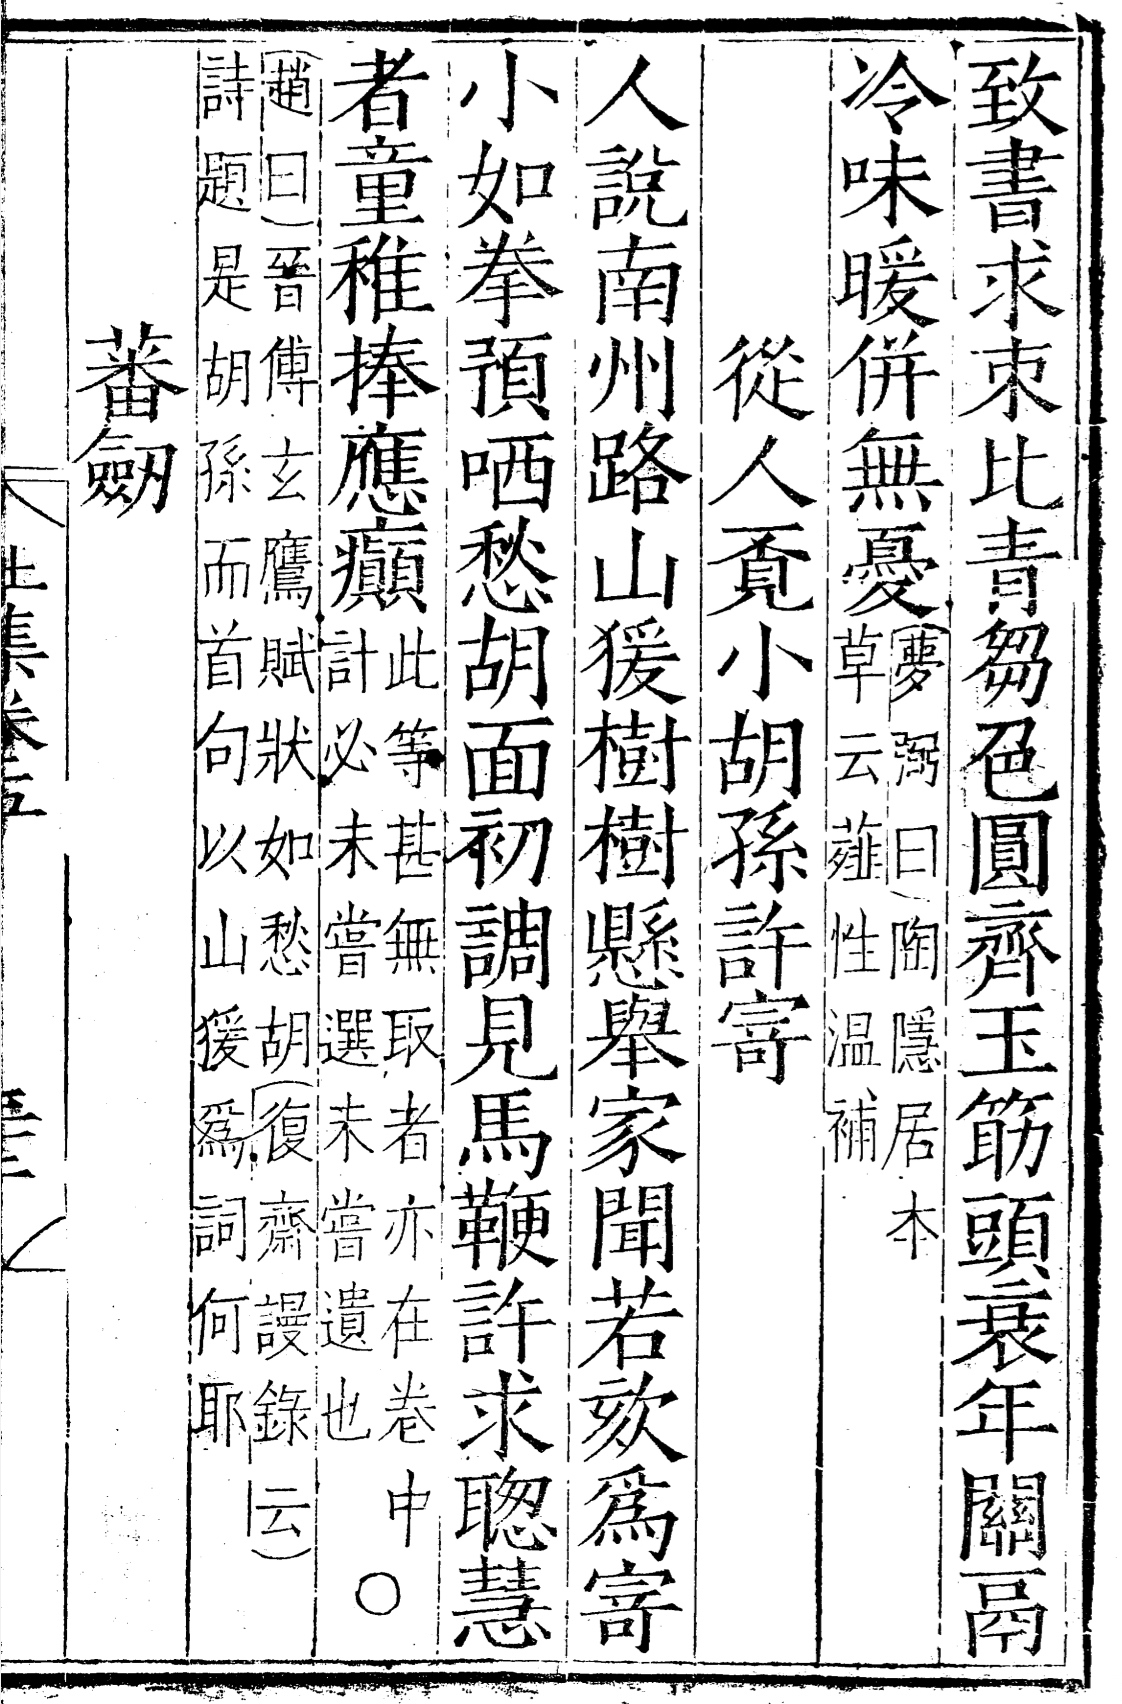 致書求朿比青芻色圓齊玉筯頭衰年關鬲
冷味暖併無憂
夢弼曰陶隱居本
草云薤性温補
從人覔小胡孫許寄
人說南州路山猨樹樹懸舉家聞若欬爲寄
小如拳預哂愁胡面初調見馬鞭許求聦慧
者童稚捧應癲
此等甚無取者亦在卷中○
計必未嘗選未嘗遺也
趙曰晉傅玄鷹賦狀如愁胡復齋謾錄云
詩題是胡孫而首句以山猨爲詞何耶
蕃劒
杜集卷五